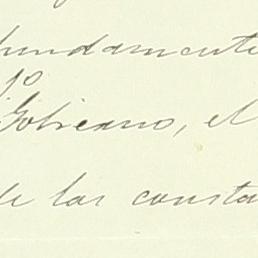 fundamento
1º
Gobierno, el
de las consta